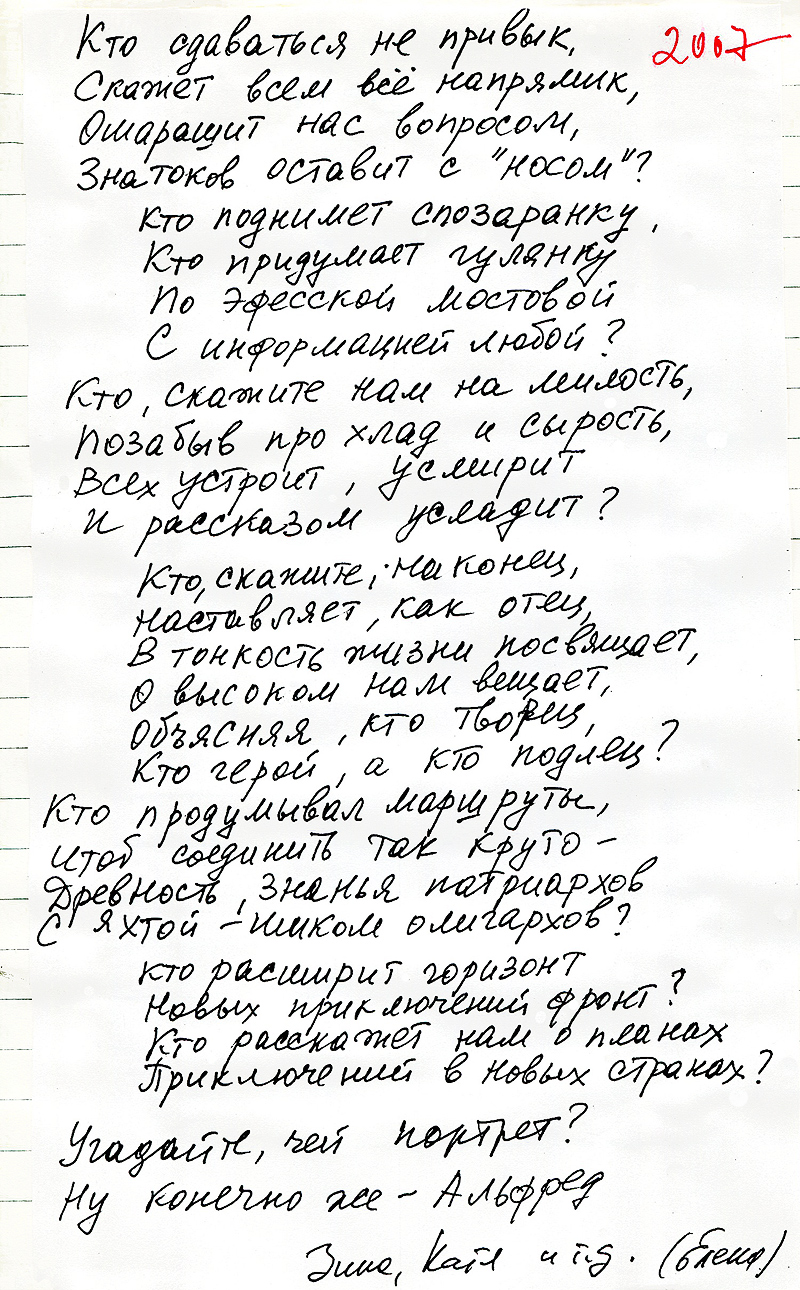 Кто сдаваться не привык,
2007
Скажет всем всё напрямик,
Ошарашит нас вопросом,
Знатоков оставит с "носом"?
Кто поднимет спозаранку,
Кто придумает гулянку
По Эфесской мостовой
С информацией любой?
Кто, скажите нам на милость,
Позабыв про хлад и сырость,
Всех устроит, усмирит
И рассказом усладит?
Кто, скажите, наконец,
Наставляет, как отец,
В тонкость жизни посвящает,
О высоком нам вещает,
Объясняя, кто творец,
Кто герой, а кто подлец?
Кто продумывал маршруты,
Чтоб соединить так круто –
Древность, знанья патриархов
С яхтой – шиком олигархов?
Кто расширит горизонт
Новых приключений фронт?
Кто расскажет нам о планах
Приключений в новых странах?
Угадайте, чей портрет?
Ну конечно же – Альфред
Зина, Катя и т.д. (Елена)